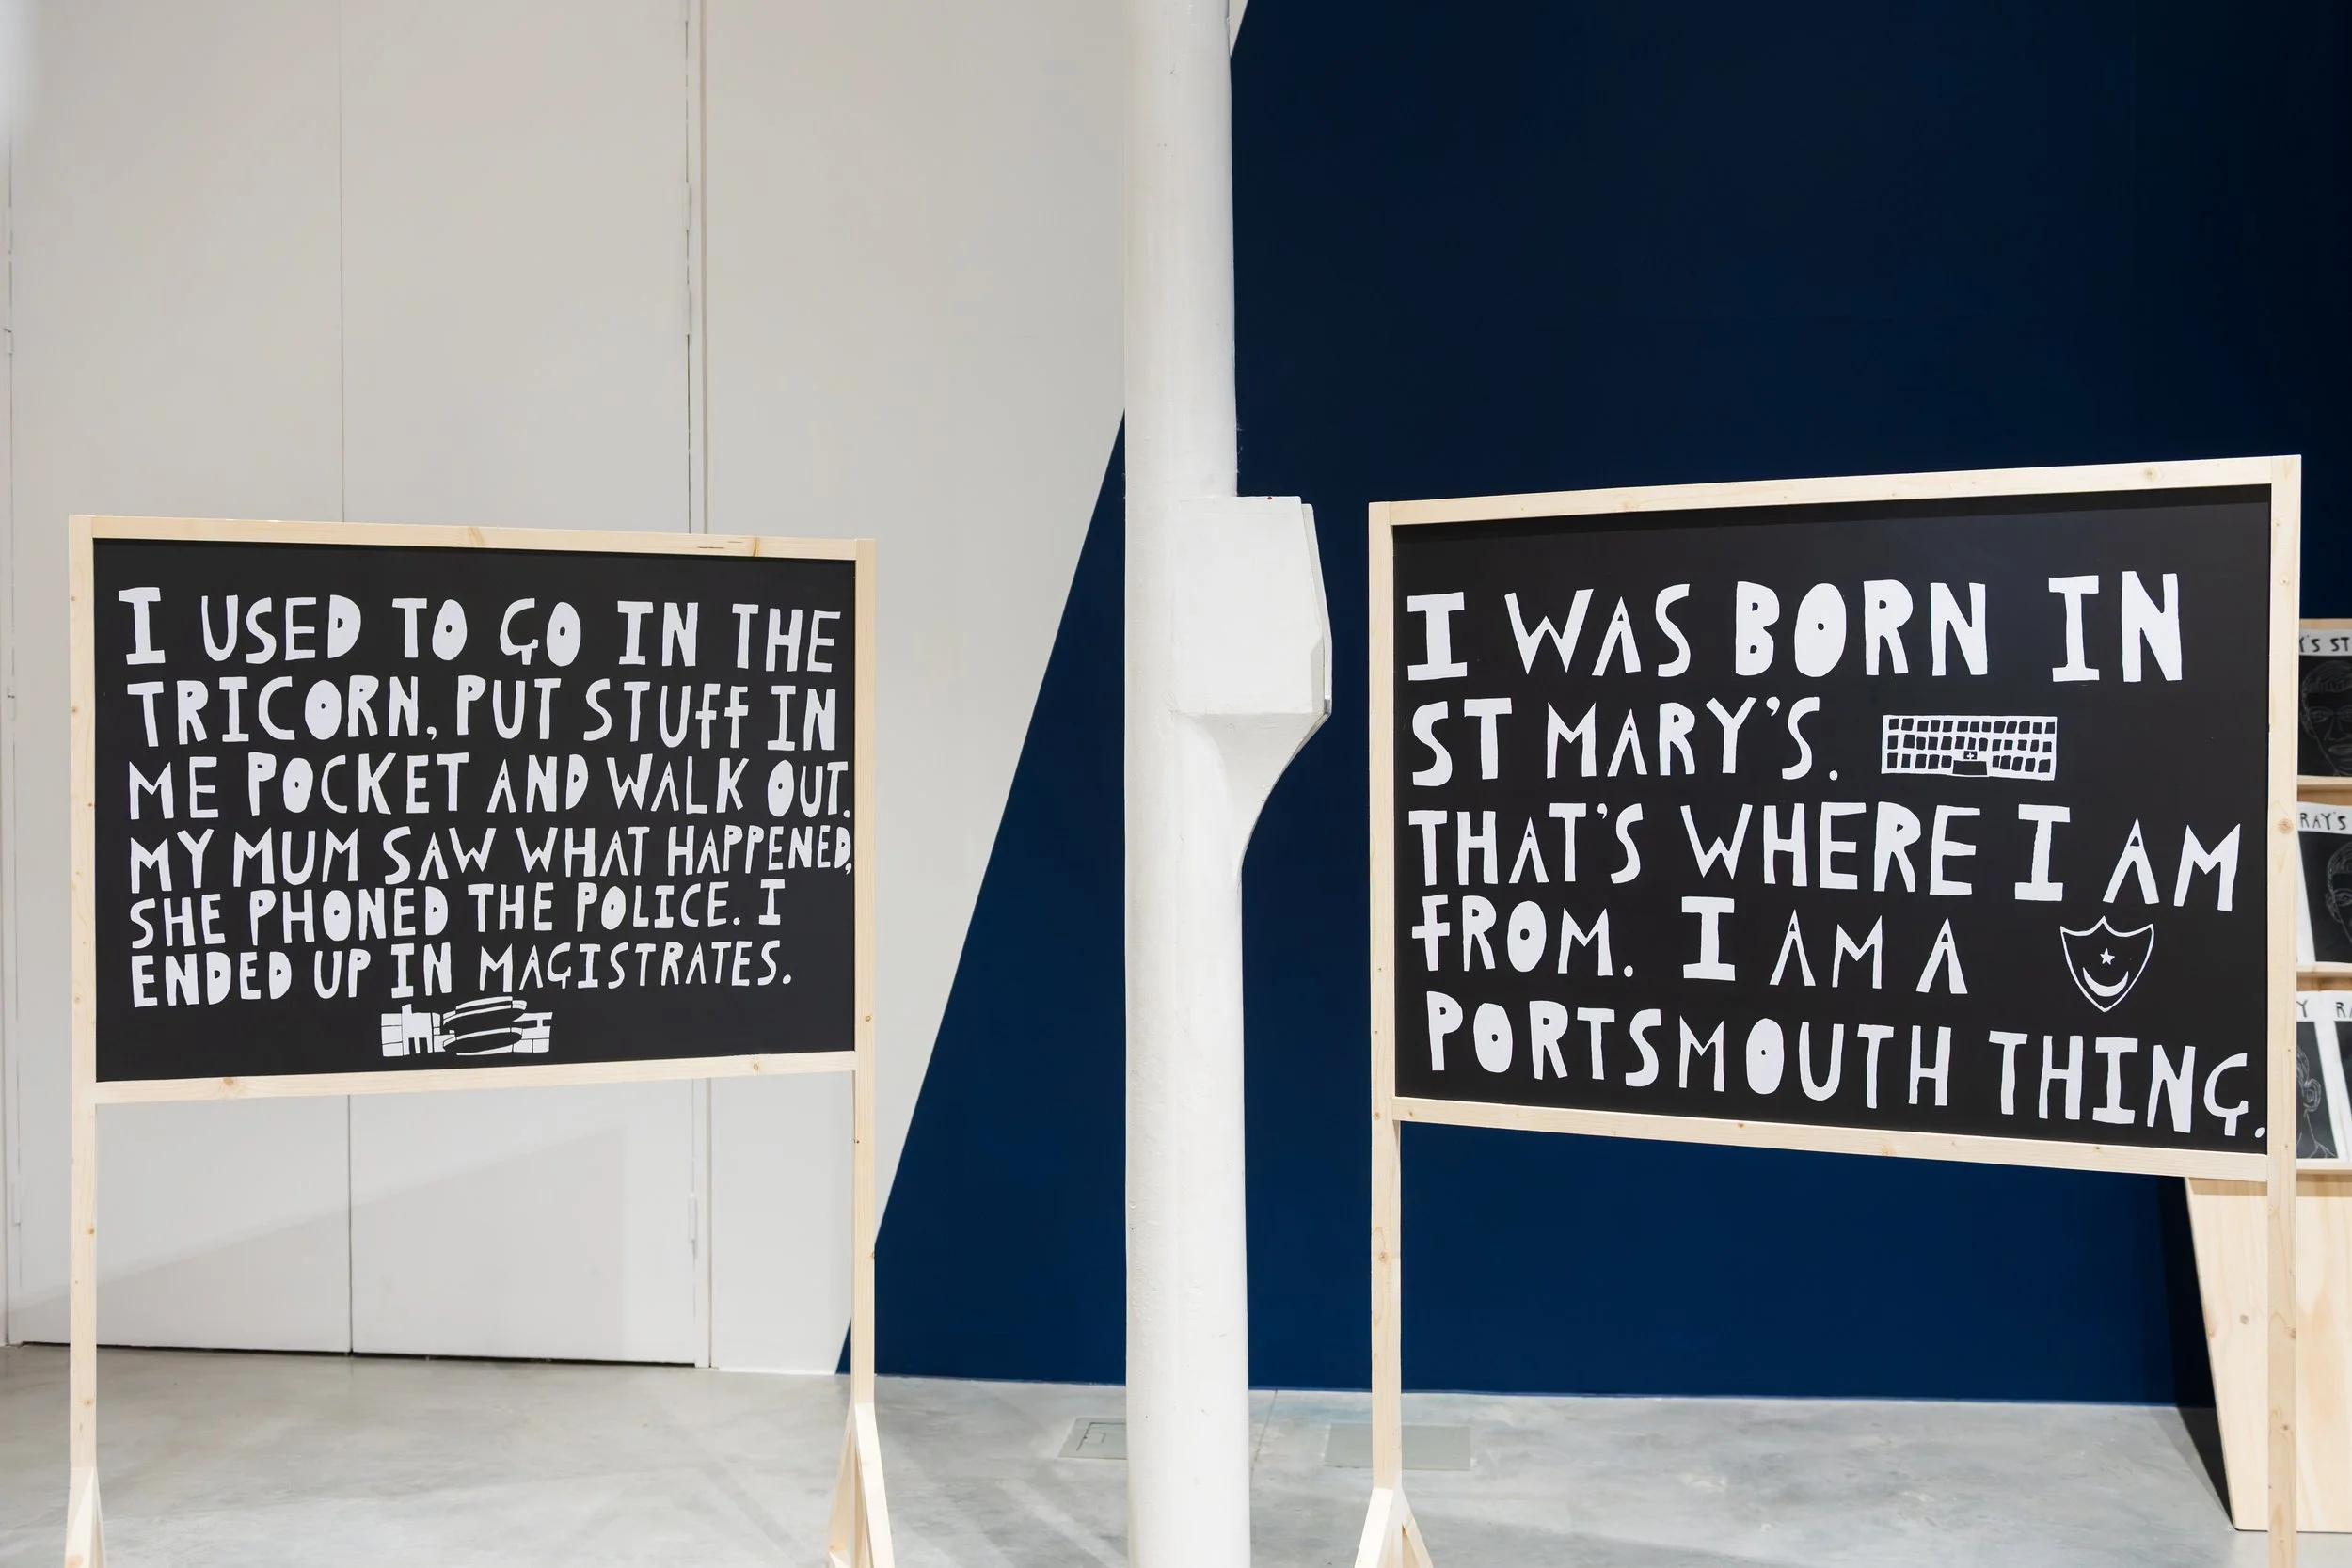 I USED TO GO IN THE
TRICORN, PUT STUFF IN
ME POCKET AND WALK OUT.
MY MUM SAW WHAT HAPPENED,
SHE PHONED THE POLICE. I
ENDED UP IN MAGISTRATES.
I WAS BORN IN
ST MARY'S.
THAT'S WHERE I AM
FROM. I AM A
PORTSMOUTH THING.